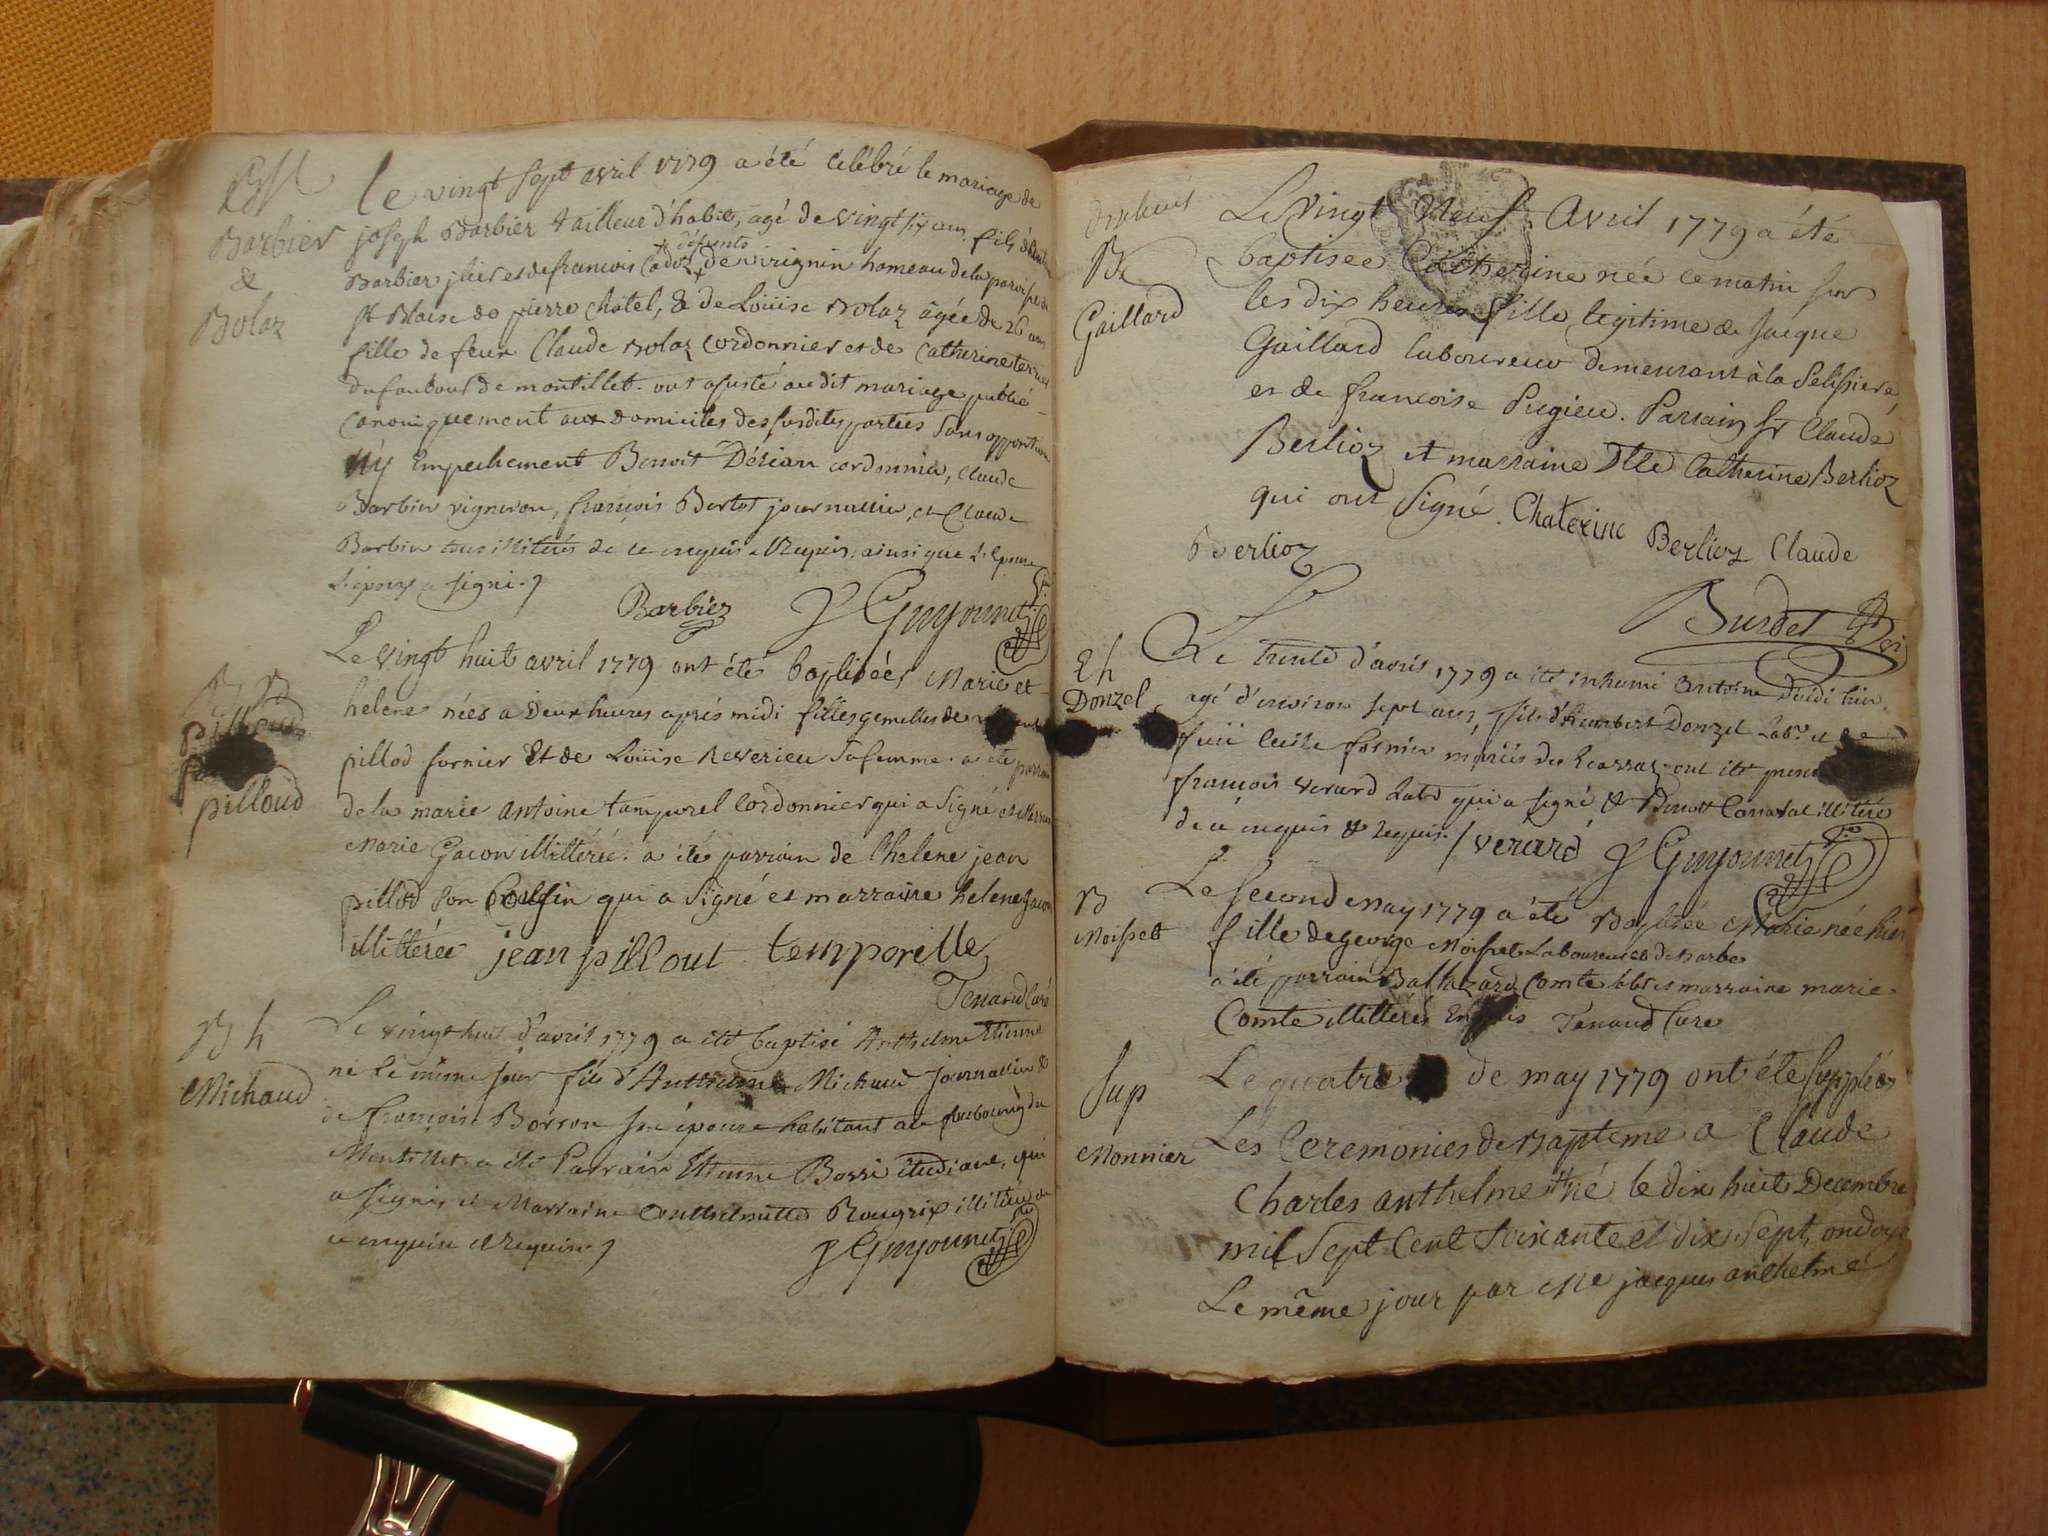 Barbier
&
Bolaz
Le vingt sept avril 1779 a été célébré le mariage de
joseph Barbier tailleur d'habit, agé de vingt six ans fils
défunts
Barbier et de francois de virignin hameau de la paroisse
St Blaise de pierre Chatel, & de Loüise Bolaz agée de 26 ans
fille de feux Claude Bolaz Cordonnier et de Catherine
du faubour de montillet. ont assisté audit mariage publié
Canoniquement aux domiciles des susdites parties sans opposition
ny Empechement Benoit cordonnier, claude
Barbier vigneron, françois journallier, et Claude
Barbier tous illiterés de ce enquis & Requis, ainsi que L'épouse
L'époux a signé.
Barbier Guyonnet
pilloud
pilloud
Le vingt huit avril 1779 ont été baptisées Marie et
helene nées a deux heures aprés midi filles gemelles de
pillod fornier Et de Loüise Reverieu sa femme. a été parrain
de la marie antoine tamporel Cordonnier qui a signé et Marraine
Marie Gacon illitérée. a été parrain de l'helene jean
pillod son Coussin qui a signé et marraine helene Gacon
illitérée jean pillout temporelle
Tenand Curé
B h
Michaud
Le vingt huit d'avril 1779 a été baptisé Anthelme Etienne
né le même jour fils d'Anthelme Michaud journalier &
de françoise Borron son épouse habitant au fauxbourg du
Montillet. a été Parrain Etienne Borri étudiant, qui
a signé, et Marraine Rougrix illitérée de
ce enquise et requise.
Guyonnet
B
Gaillard
Le vingt Neuf Avril 1779 a été
baptisée Catherine née ce matin sur
les dix heures fille legitime de Jacque
Gaillard laboureur demeurant à la Pelissiere,
et de francoise Pugieu. Parrain Sr Claude
Berlioz et marraine Dlle Catherine Berlioz
qui ont signé. Chaterine Berlioz Claude
Berlioz
Burdet
Donzel
Le trente d'avril 1779 a été inhumé Antoine décédé hier
agé d'environ sept ans, fils d'humbert Donzel Labr. et de
fornier mariés du ont été presens
francois verard Labr qui a signé & Benoit illitéré
de ce enquis & requis. / verard Guyonnet
B
Moisset
Le second May 1779 a été Baptisée Marie née hier
fille de george Moisset Laboureur
a été parrain Balthazard Comte et marraine marie
Comte illitterés Enquis Tenand Curé
Sup
Monnier
Le quatre de may 1779 ont été suppléés
Les Ceremonies de Baptême a Claude
Charles anthelme né le dix huit Decembre
mil Sept Cent Soixante et dix Sept, ondoyé
Le même jour par Me jacques anthelme